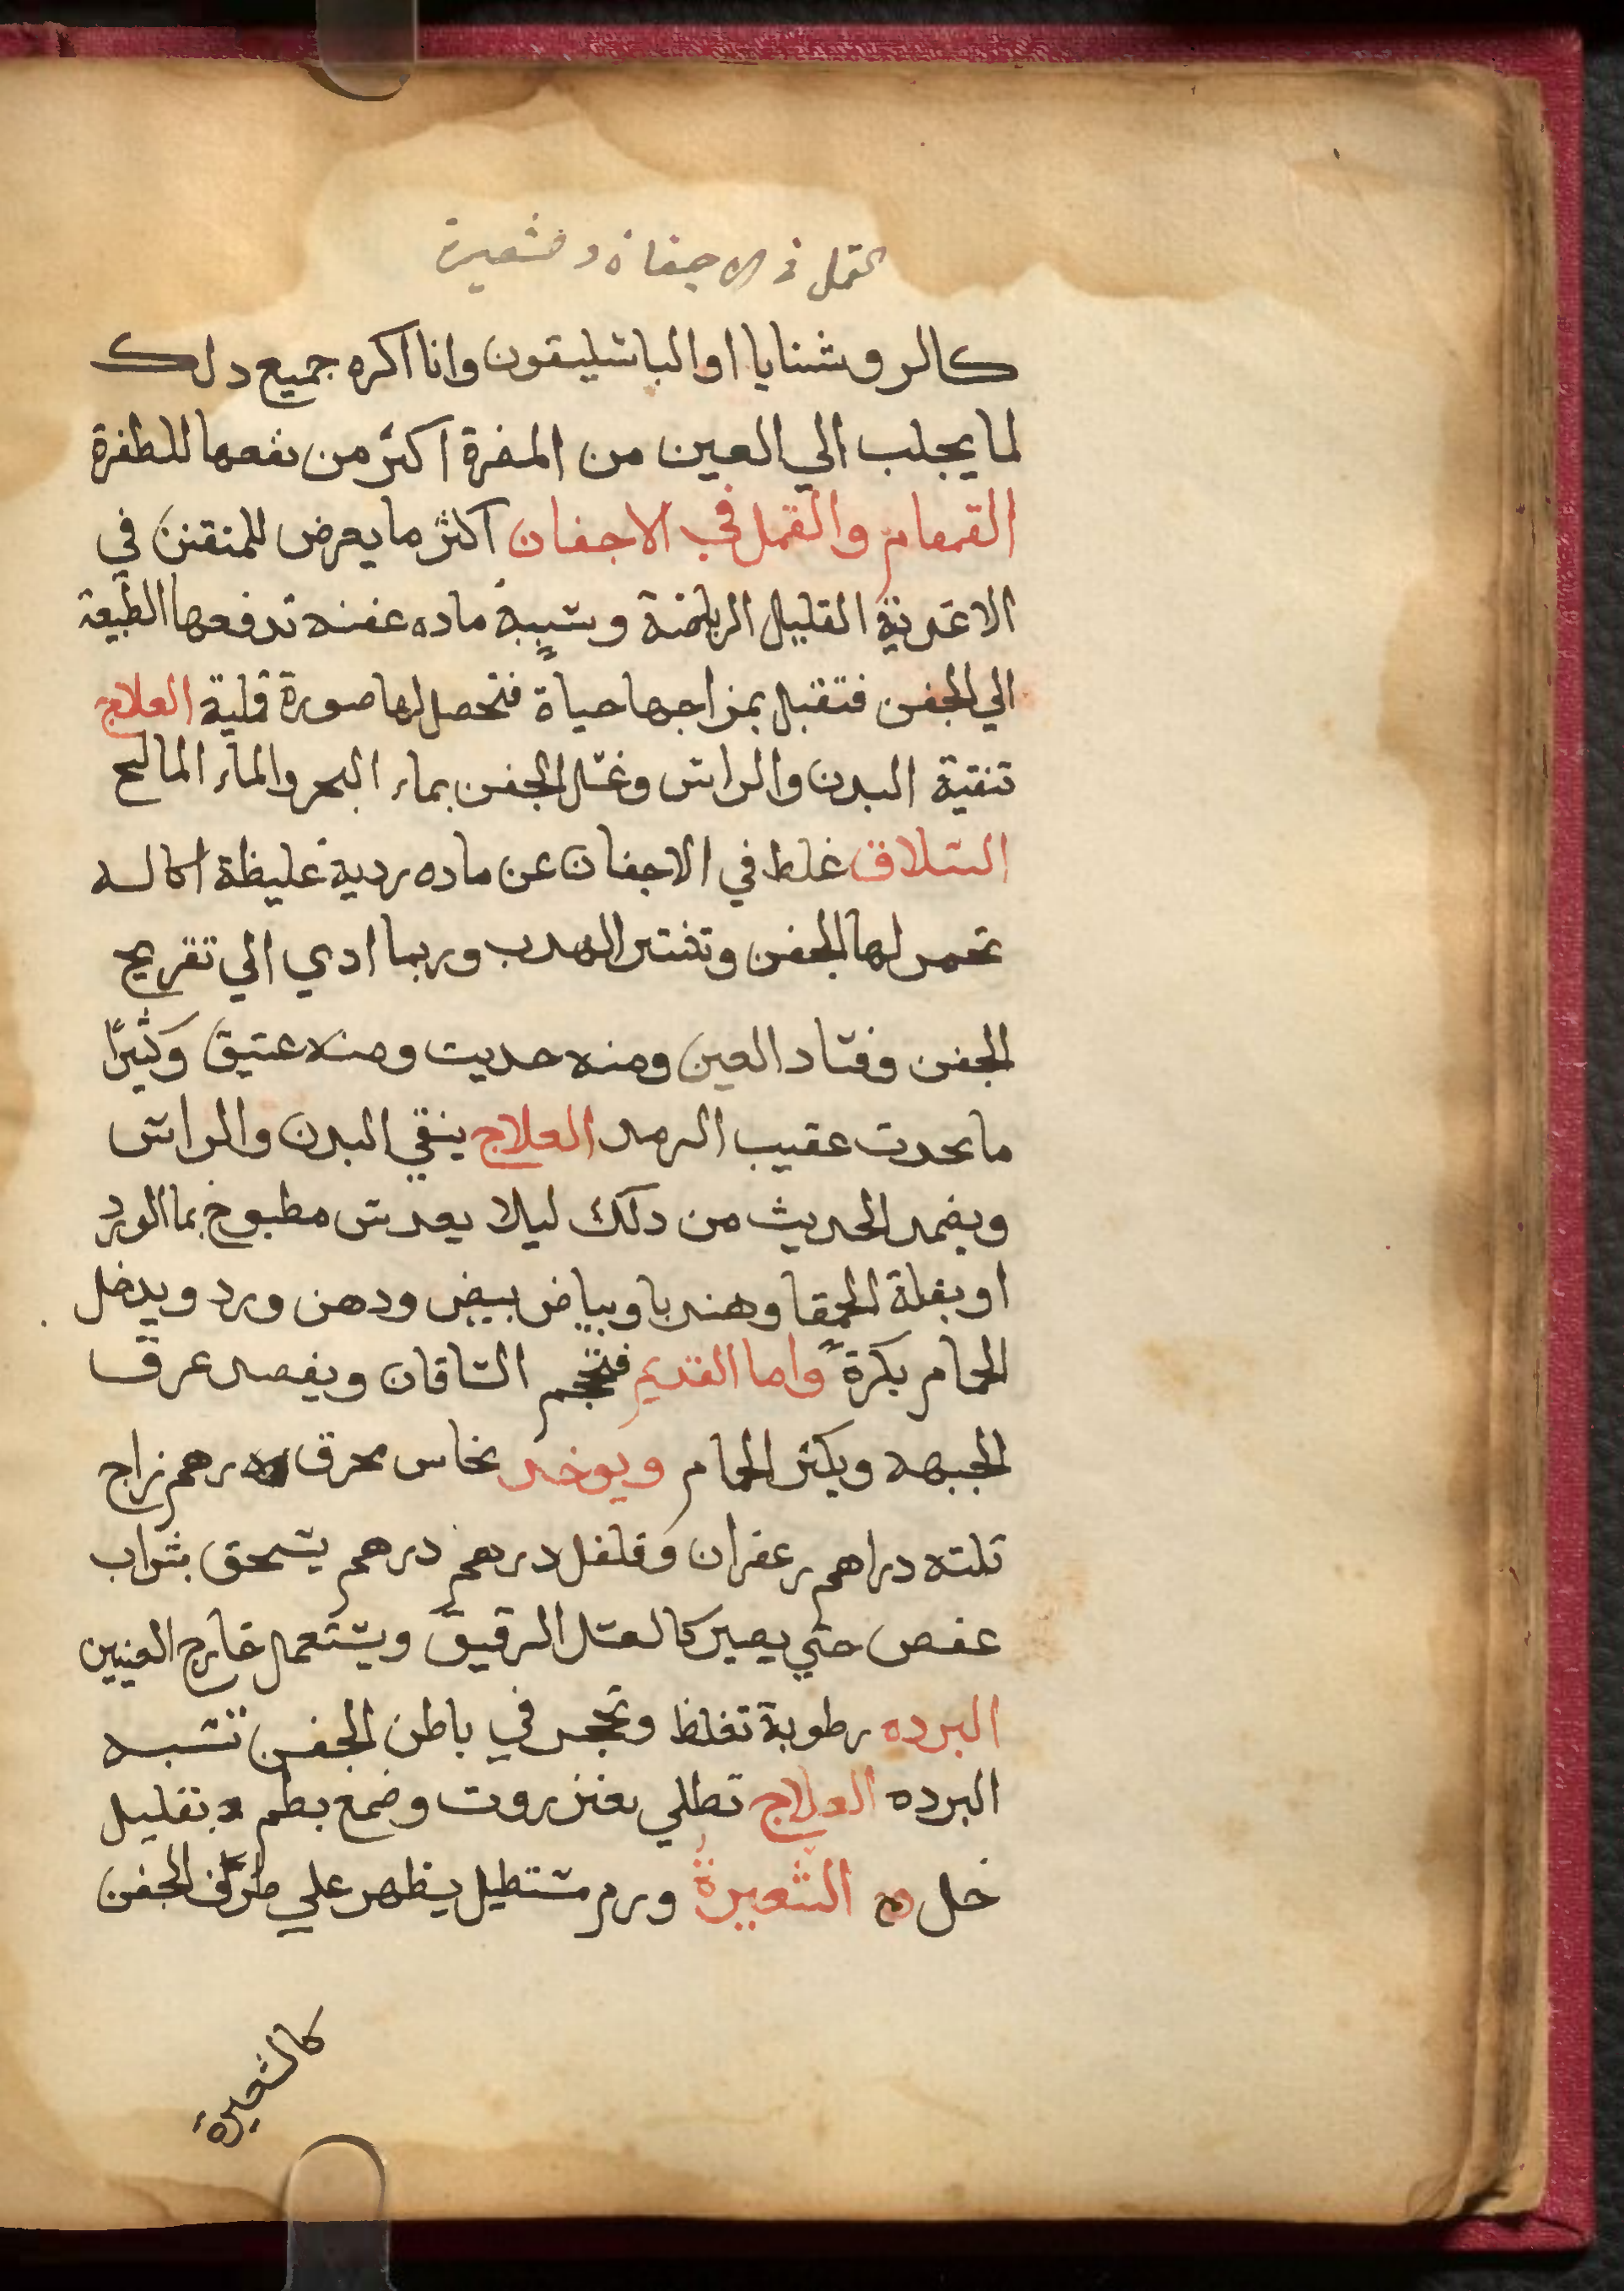 القمل في الاجفان و شعيرة
كالروشنايا او الباسليقون وانا اكره جميع دلك
لما يجلب الي العين من المضرة اكثر من نفعها للطفرة
القمقام والقمل في الاجفان اكثر ما يعرض للمتقنن في
الاغدية القليل الرياضة وسببه ماده عفنه تدفعها الطبيعة
الي الجفن فتقبل بمزاجها حياة فتحصل لها صورة قملية العلاج
تنقية البدن والراس وغسل الجفن بماء البحر والماء المالح
السلاق غلط في الاجفان عن ماده ردية غليظة اكاله
تحمر لها الجفن وتنتثر الهدب وربما ادي الي تقريح
الجفن وفساد العين ومنه حديت ومنه عتيق وكثيرًا
ما يحدت عقيب الرمد العلاج ينقي البدن والراس
ويضمد الحديث من دلك ليلا بعدس مطبوخ بما الورد
او بقلة الحمقا وهندبا وبياض بيض ودهن ورد ويدخل
الحمام بكرة واما القديم فتحجم الساقان ويفصد عرق
الجبهه ويكثر الحمام ويوخد نحاس محرق درهم زاج
تلته دراهم زعفران وفلفل درهم درهم يسحق بشراب
عفص حتي يصير كالعسل الرقيق ويستعمل خارج العينين
البرده رطوبة تغلظ وتحجر في باطن الجفن تشبه
البرده العلاج تطلي بعنزروت وصمغ بطم بقليل
خل الشعيرة ورم مستطيل يظهر علي طرف الجفن
كالشعيرة